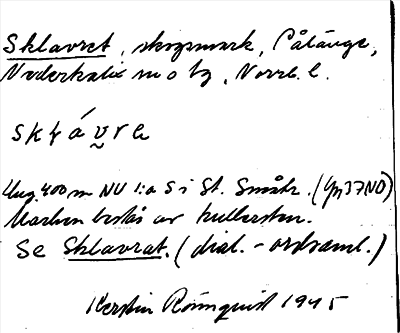 Sklavret, skogsmark, Pålänge,
Nederkalix sn o tg, Norrb. l.
sklávre
Ung. 400 m NV 1:a S i St. Småtr. (Yp37NO)
Marken består av kullersten.
Se Sklavrat. (dial.-ordsaml.)
Kerstin Rönnquist 1945